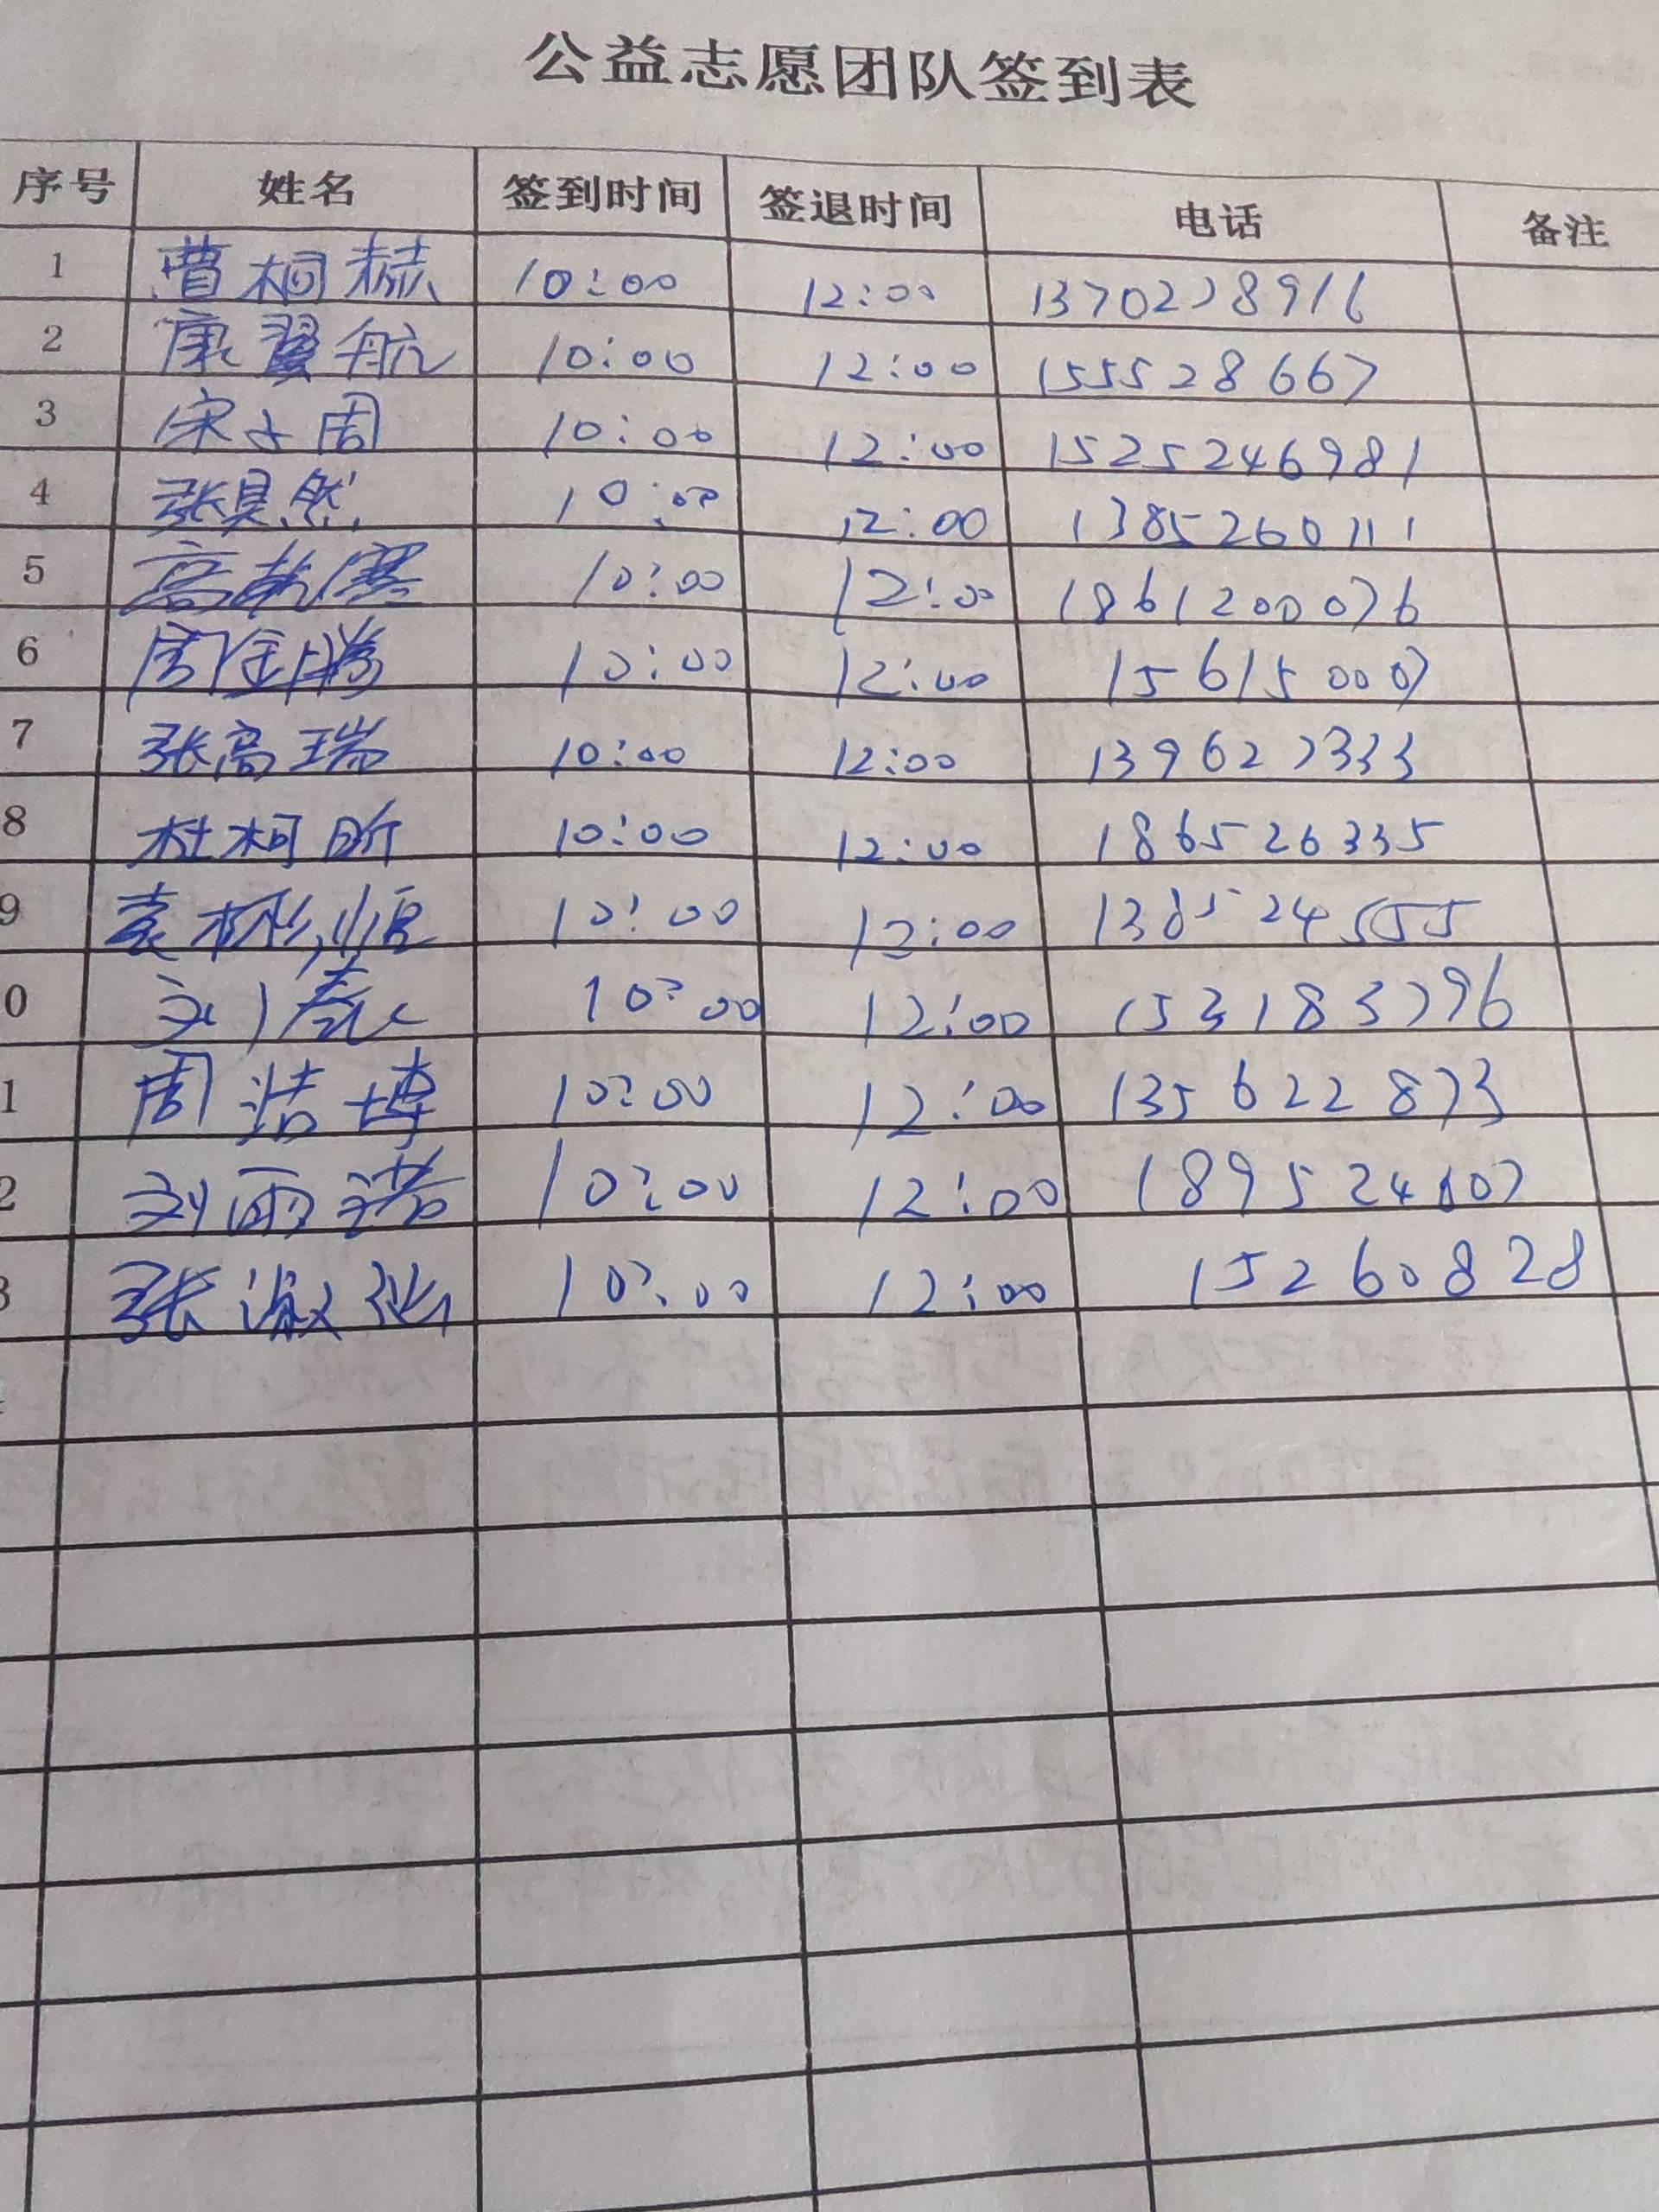 公益志愿团队签到表
序号 姓名 签到时间 签退时间 电话 备注
1 曹桐赫 10:00 12:00 1370278916
2 康翼航 10:00 12:00 155528667
3 宋子周 10:00 12:00 1525246981
4 张昊然 10:00 12:00 1385260111
5 高乾 10:00 12:00 1861200076
6 周金腾 10:00 12:00 156150007
7 张高瑞 10:00 12:00 139627333
8 杜柯昕 10:00 12:00 186526335
9 袁彬恒 10:00 12:00 138524555
0 10:00 12:00 153183796
1 周浩博 10:00 12:00 135622873
2 刘雨诺 10:00 12:00 189524607
3 张淑 10:00 12:00 15260828